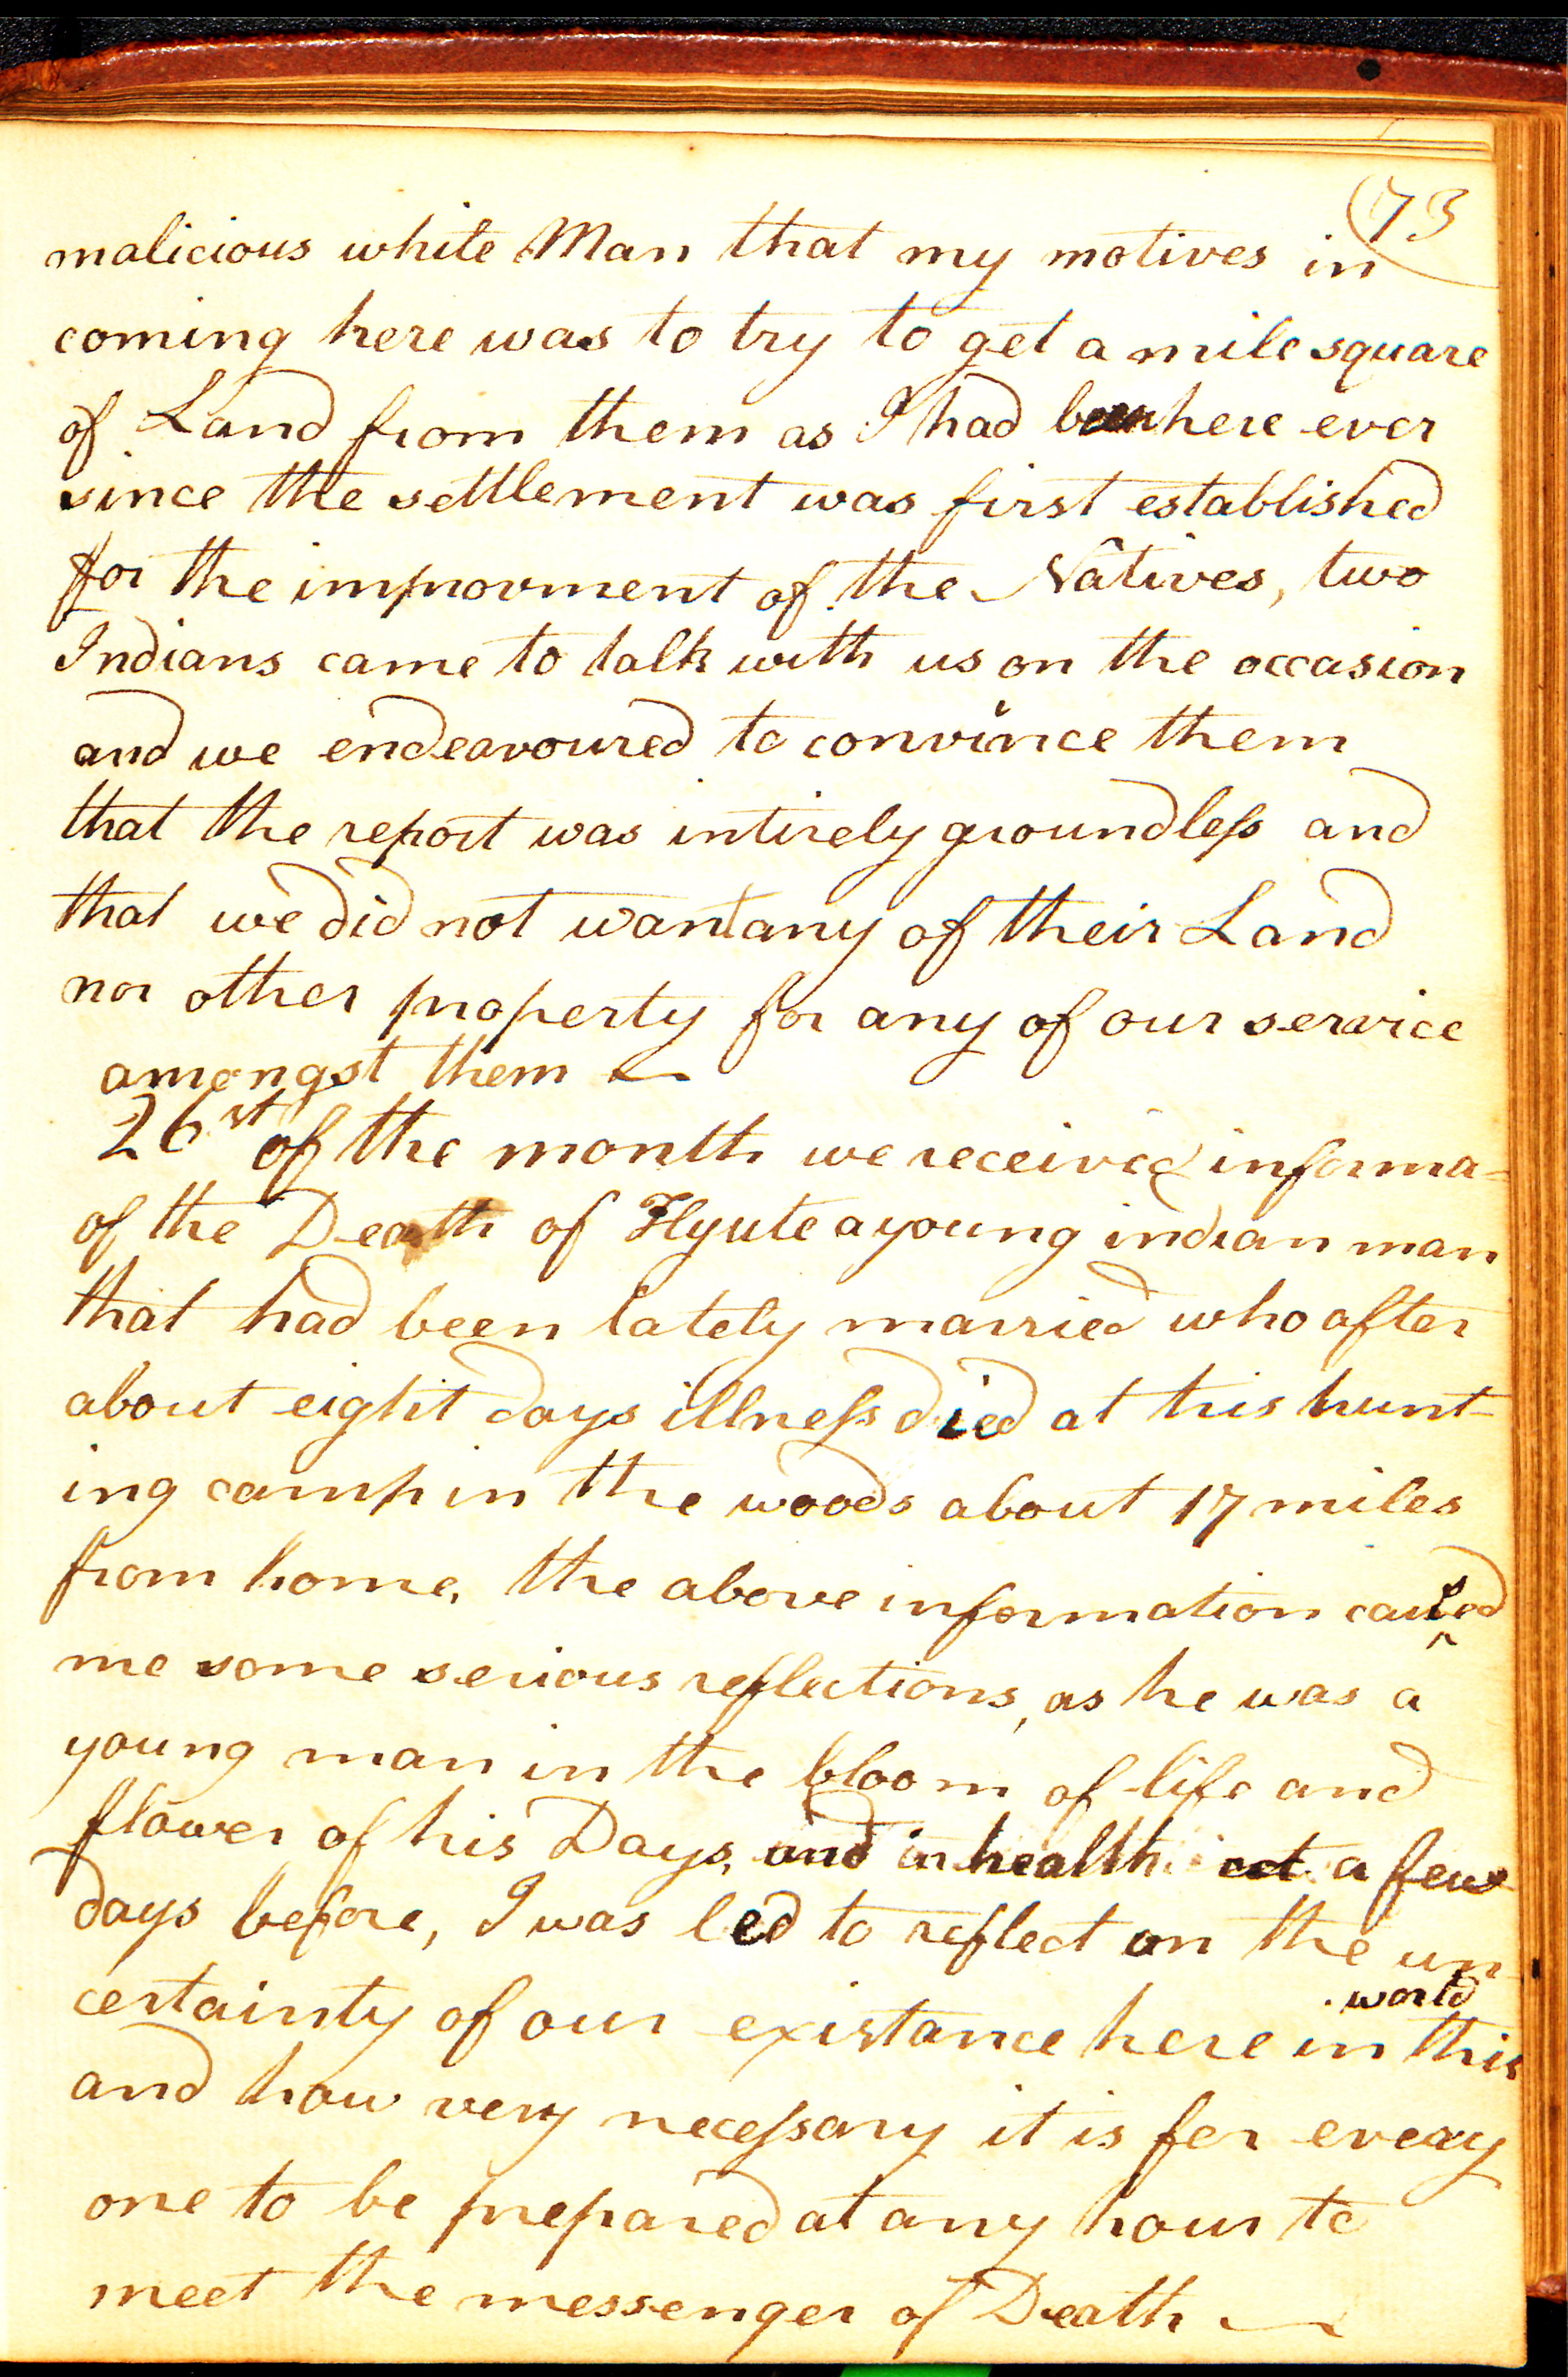 73
malicious white Man that my motives in
coming here was to try to get a mile square
of Land from them as I had been here ever
since the settlement was first established
for the improvment of the Natives, two
Indians came to talk with us on the occasion
and we endeavoured to convince them
that the report was intirely groundless and
that we did not want any of their Land
nor other property for any of our service
amongst them
26st of the month we received informa-
of the Death of Flyute a young indian man
that had been lately married who after
about eight days illness died at his hunt-
ing camp in the woods about 17 miles
from home, the above information caused
me some serious reflections, as he was a
young man in the bloom of life and
flower of his Days, and in health a few
days before, I was led to reflect on the un-
certainty of our existance here in this world
and how very necessary it is for every
one to be prepared at any hour to
meet the messenger of Death